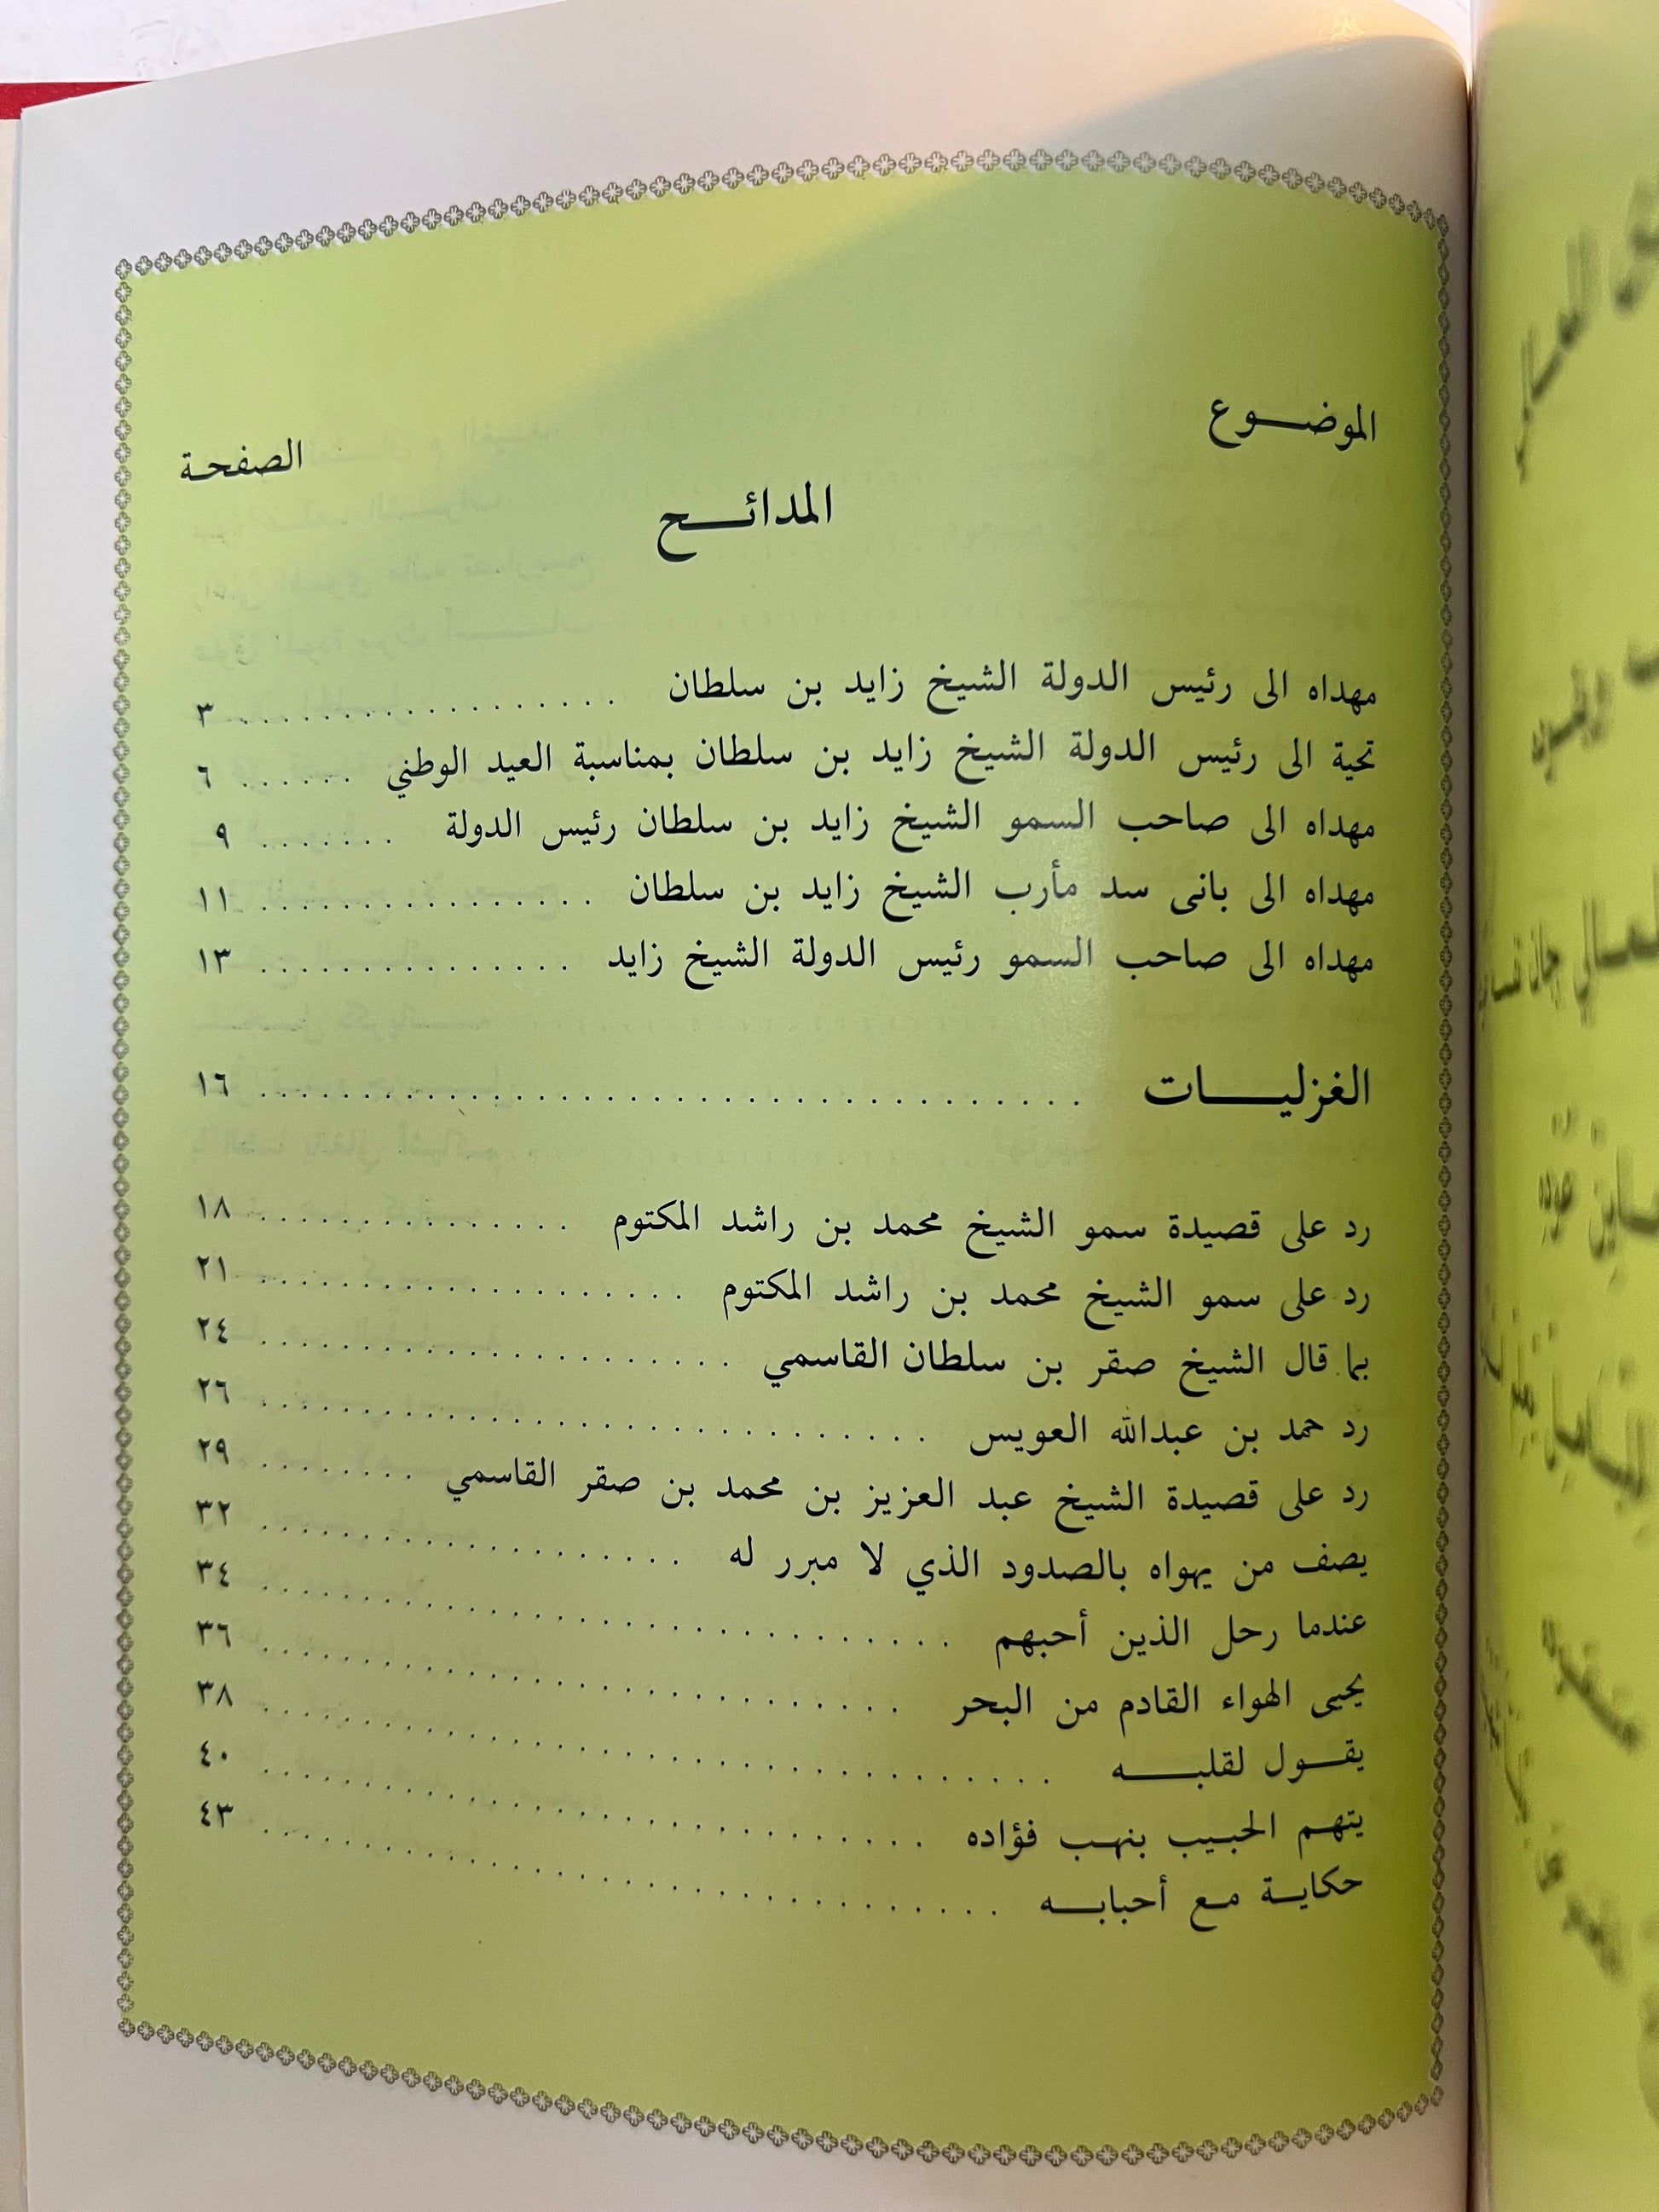 الموضــوع
الصفحـة
المدائـــح
مهداه الى رئيس الدولة الشيخ زايد بن سلطان . . . . . . . . . . . . . . . . . . ٣
تحية الى رئيس الدولة الشيخ زايد بن سلطان بمناسبة العيد الوطني . . . . . . ٦
مهداه الى صاحب السمو الشيخ زايد بن سلطان رئيس الدولة . . . . . . . ٩
مهداه الى بانى سد مأرب الشيخ زايد بن سلطان . . . . . . . . . . . . . . . ١١
مهداه الى صاحب السمو رئيس الدولة الشيخ زايد . . . . . . . . . . . . . . ١٣
الغزليـــات . . . . . . . . . . . . . . . . . . . . . . . . . . . . . . ١٦
رد على قصيدة سمو الشيخ محمد بن راشد المكتوم . . . . . . . . . . . . . . ١٨
رد على سمو الشيخ محمد بن راشد المكتوم . . . . . . . . . . . . . . . . . . ٢١
بما قال الشيخ صقر بن سلطان القاسمي . . . . . . . . . . . . . . . . . . . . ٢٤
رد حمد بن عبدالله العويس . . . . . . . . . . . . . . . . . . . . . . . . . . ٢٦
رد على قصيدة الشيخ عبد العزيز بن محمد بن صقر القاسمي . . . . . . . . ٢٩
يصف من يهواه بالصدود الذي لا مبرر له . . . . . . . . . . . . . . . . . . ٣٢
عندما رحل الذين أحبهم . . . . . . . . . . . . . . . . . . . . . . . . . . ٣٤
يحيى الهواء القادم من البحر . . . . . . . . . . . . . . . . . . . . . . . . ٣٦
يقــول لقلبــــه . . . . . . . . . . . . . . . . . . . . . . . . . . . . . . ٣٨
يتهـم الحبـيب بنهـب فؤاده . . . . . . . . . . . . . . . . . . . . . . . . . ٤٠
حكايـة مـع أحبابـــه . . . . . . . . . . . . . . . . . . . . . . . . . . . . ٤٣